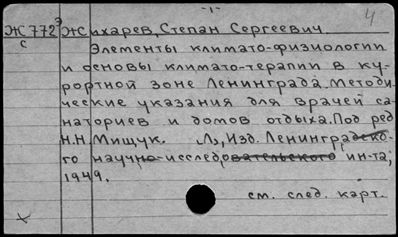 -1-
4
Ж772э Жихарев, Степан Сергеевич
с Элементы климато-физиологии
и основы климато-терапии в ку-
рортной зоне Ленинграда. Методи-
ческие указания для врачей са-
наториев и домов отдыха. Под ред
Н.Н Мищук. Л., Изд. Ленинградско-
го научно-исследовательского ин-та,
1949.
см. след. карт.